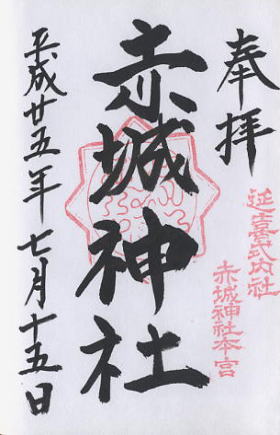 奉拝
延喜式内社
赤城神社本宮
赤城神社
平成廿五年七月十五日